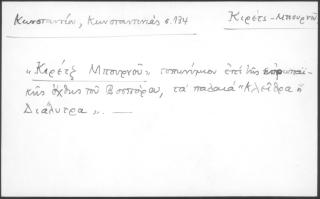 Κωνσταντίου, Κωνσταντινιάς σ. 134
Κιρέτς-Μπουρνού
"Κιρέτζ Μπουρνού", τοπωνήμιον ἐπί τῆς εὐρωπαϊ-
κῆς ὄχθης τοῦ Βοσπόρου, τά παλαιά "Κλεῖθρα ἤ
Διάλυτρα". —